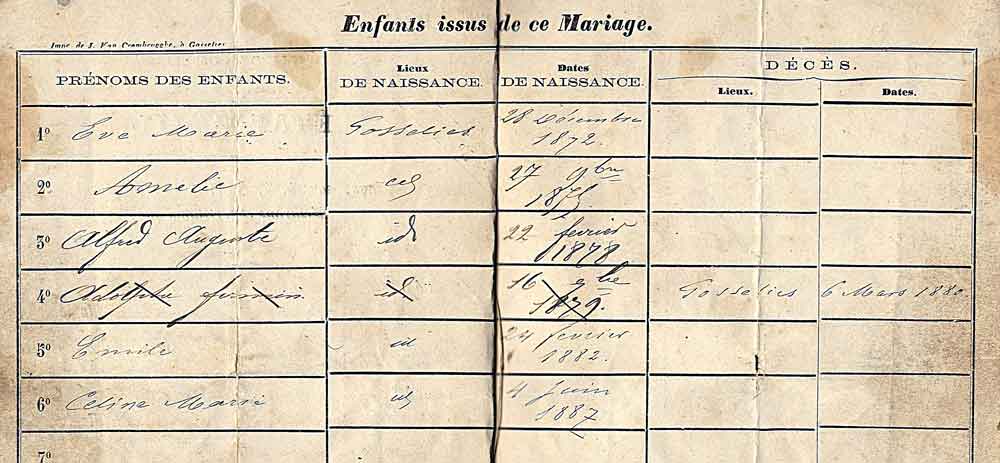 Enfants issus de ce Mariage.
Impr. de J. Van Crombrugghe, à Gosselies
PRÉNOMS DES ENFANTS.
Lieux
DE NAISSANCE.
Dates
DE NAISSANCE.
DÉCÈS.
Lieux.
Dates.
1º Eve Marie Gosselies 28 Décembre
1872.
2º Amelie id 27 9bre
1875.
3º Alfred Auguste id 22 fevrier
1878
4º Adolphe firmin id 16 9bre Gosselies 6 Mars 1880.
1879.
5º Emile id 24 fevrier
1882.
6º Celine Marie id 4 Juin
1887
7º